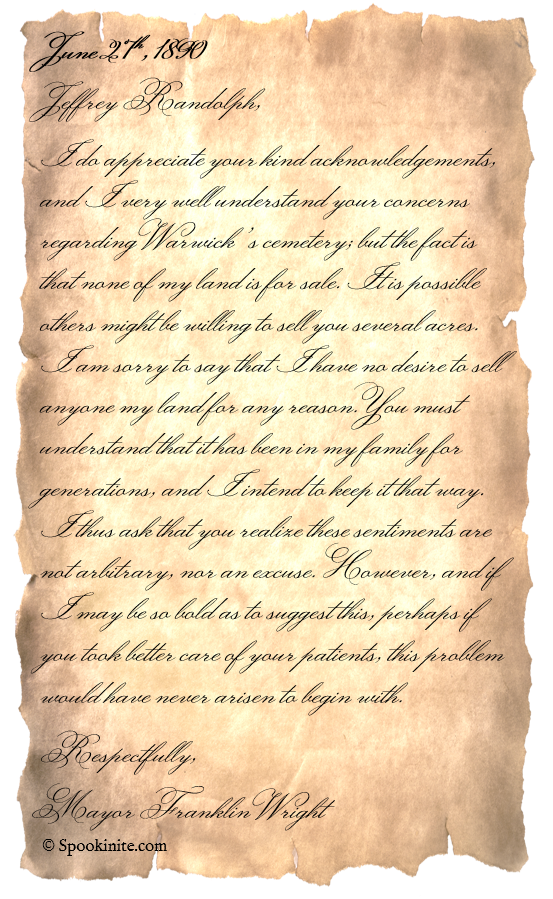 June 27th, 1890
Jeffrey Randolph,
I do appreciate your kind acknowledgements,
and I very well understand your concerns
regarding Warwick's cemetery; but the fact is
that none of my land is for sale. It is possible
others might be willing to sell you several acres.
I am sorry to say that I have no desire to sell
anyone my land for any reason. You must
understand that it has been in my family for
generations, and I intend to keep it that way.
I thus ask that you realize these sentiments are
not arbitrary, nor an excuse. However, and if
I may be so bold as to suggest this, perhaps if
you took better care of your patients, this problem
would have never arisen to begin with.
Respectfully,
Mayor Franklin Wright
© Spookinite.com